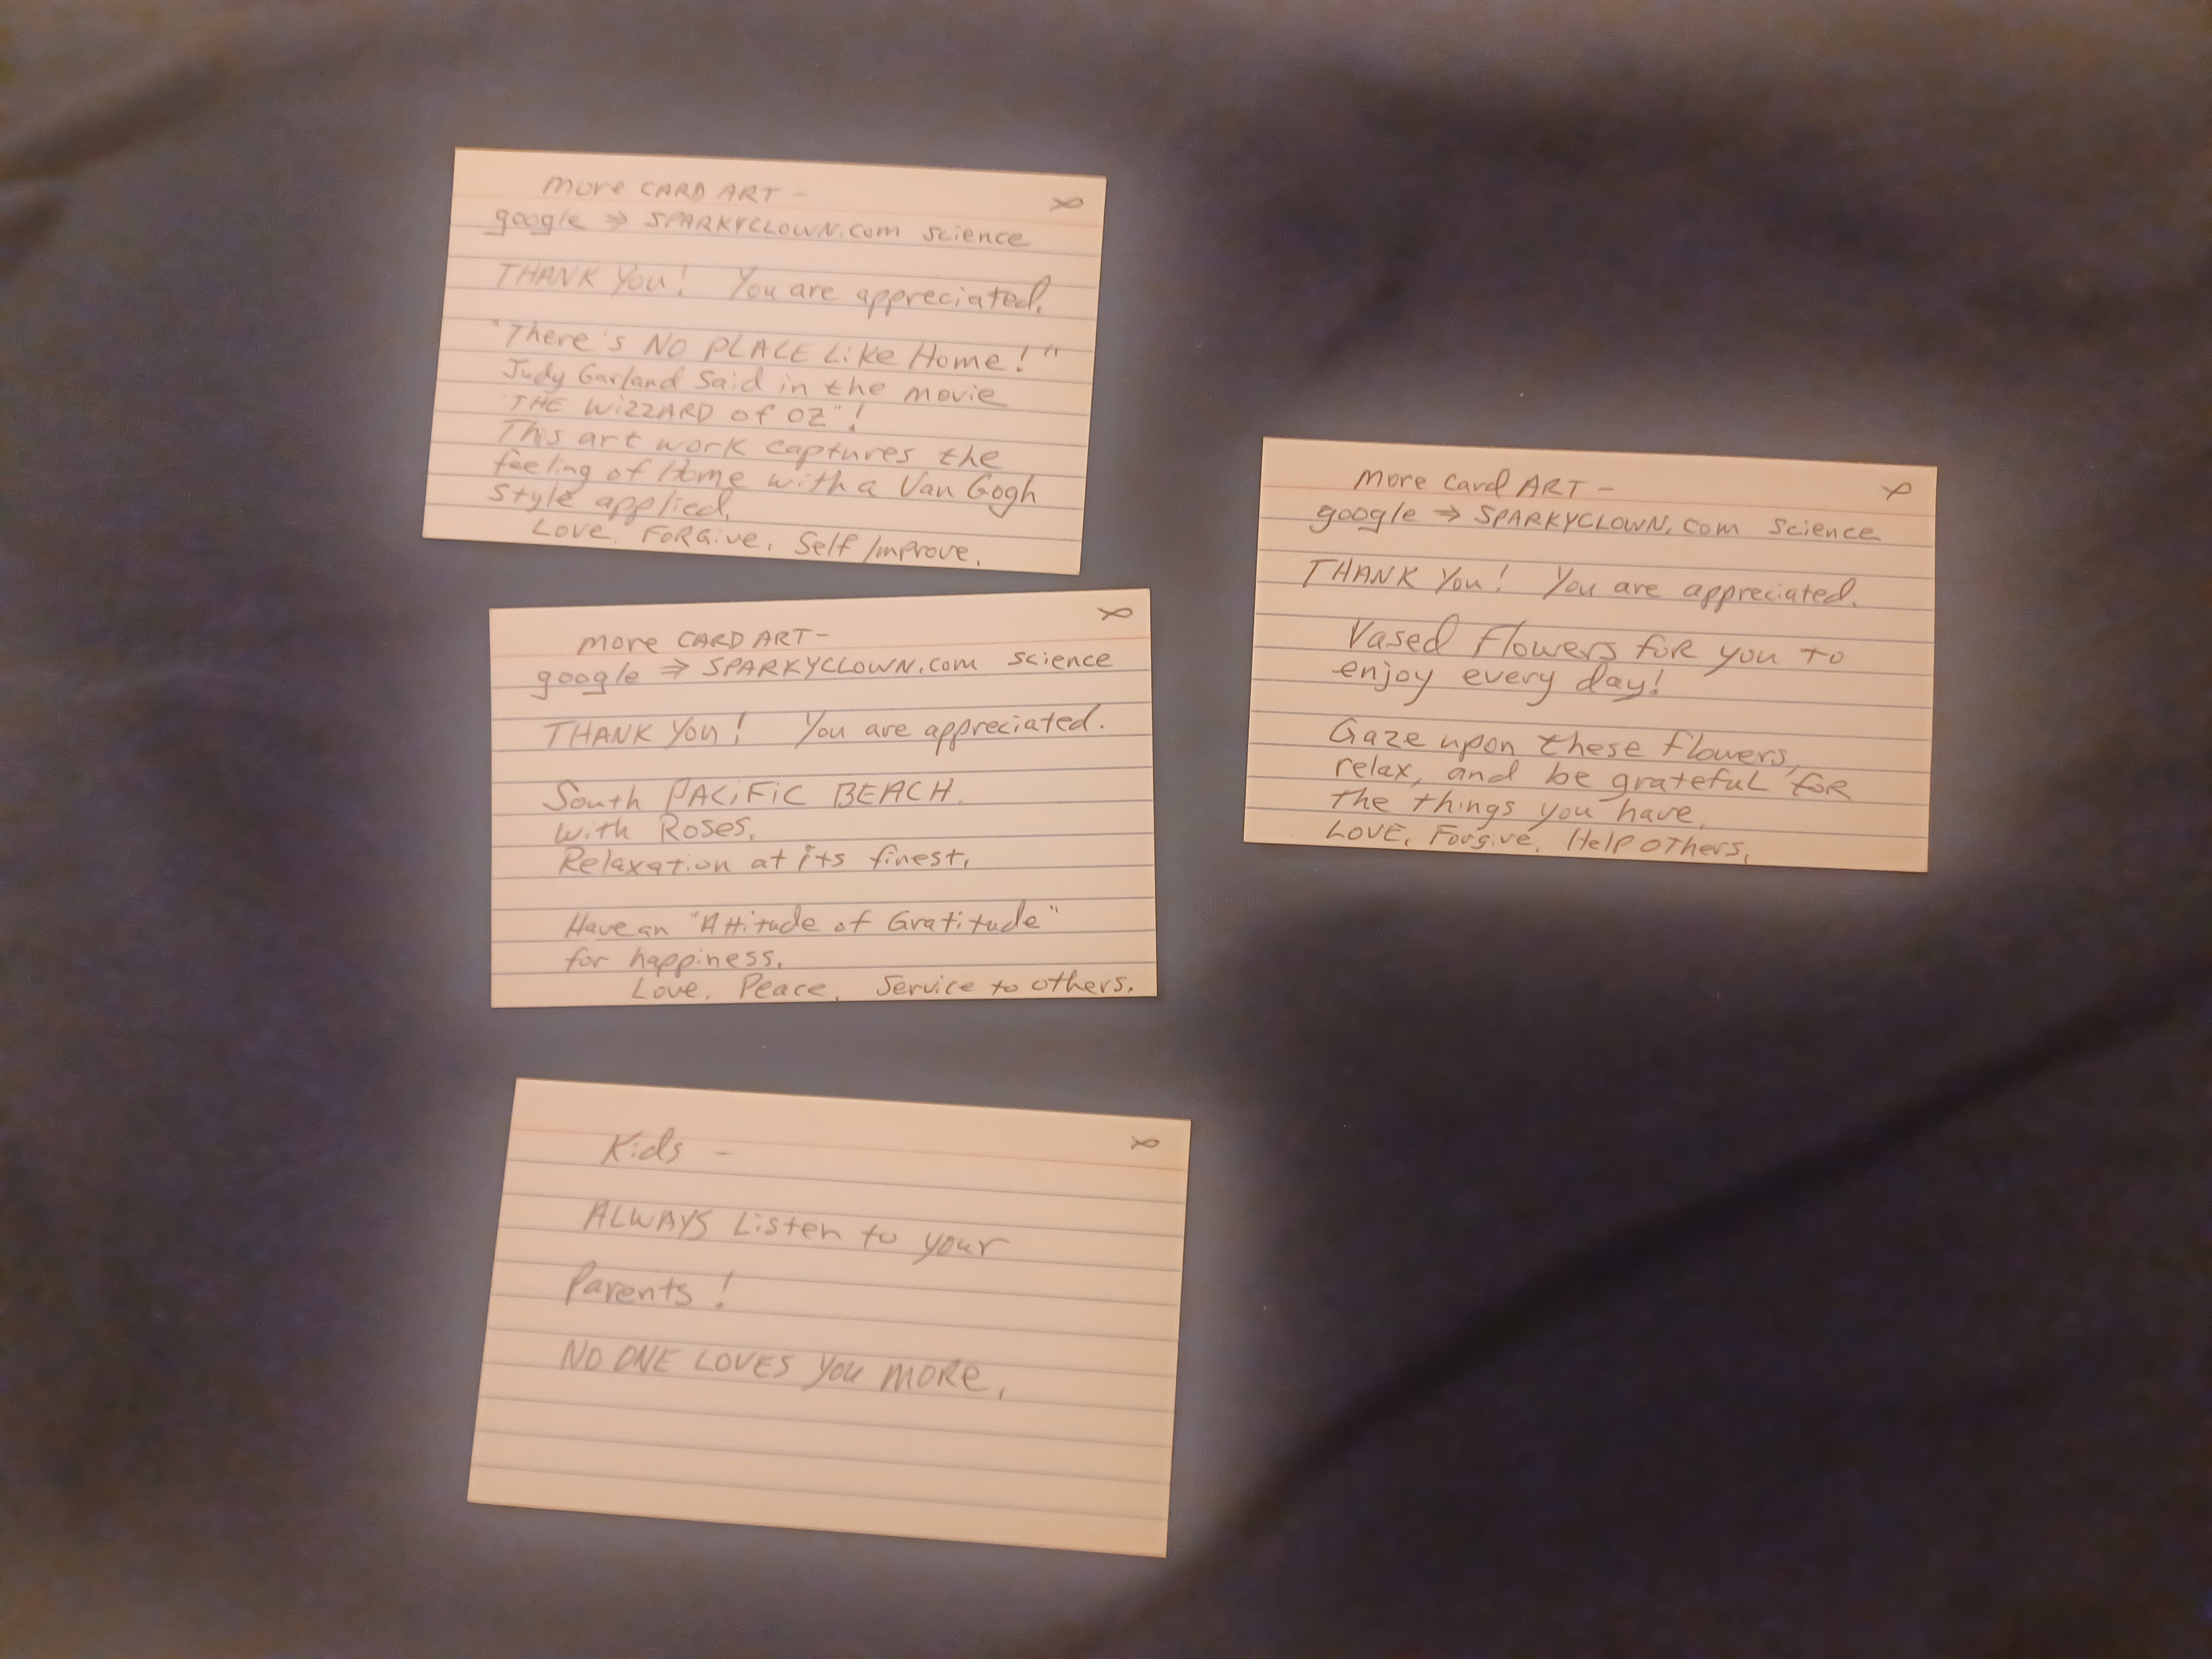 more CARD ART -
google ⇒ SPARKYCLOWN.com science
THANK You! You are appreciated.
"There's NO PLACE Like Home!"
Judy Garland Said in the movie
"THE WIZZARD of OZ"!
This art work captures the
feeling of Home with a Van Gogh
style applied.
Love. FORGive. Self Improve.
more CARD ART-
google ⇒ SPARKYCLOWN.com science
THANK You! You are appreciated.
South PACiFiC BEACH.
with Roses.
Relaxation at its finest.
Have an "Attitude of Gratitude"
for happiness.
Love. Peace. Service to others.
Kids -
ALWAYS Listen to your
Parents!
NO ONE LOVES you MORE.
more card ART -
google ⇒ SPARKYCLOWN.com science
THANK You! You are appreciated.
Vased Flowers for you to
enjoy every day!
Gaze upon these flowers,
relax, and be grateful for
the things you have.
LOVE. Forgive. Help OThers.